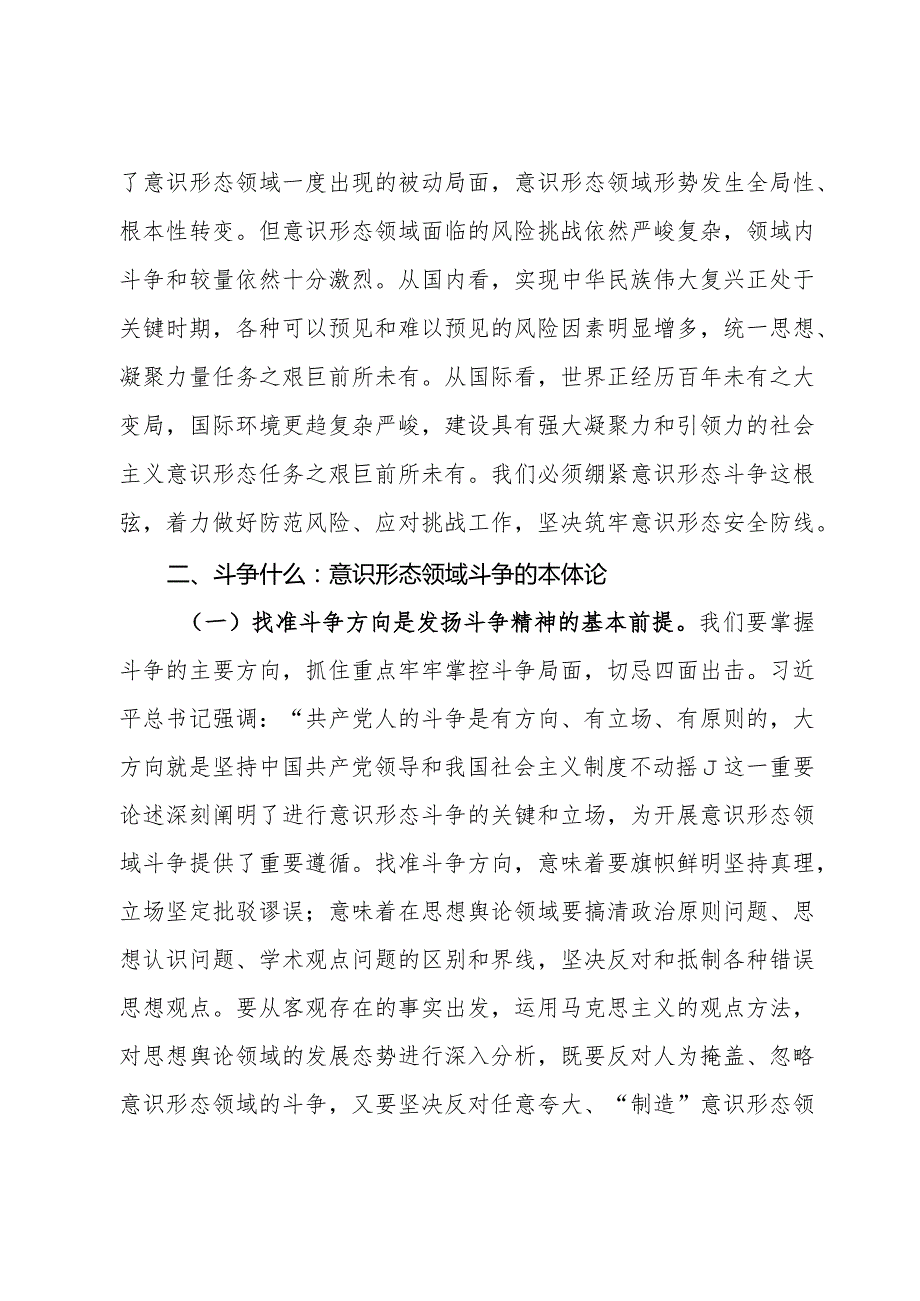 了意识形态领域一度出现的被动局面，意识形态领域形势发生全局性、
根本性转变。但意识形态领域面临的风险挑战依然严峻复杂，领域内
斗争和较量依然十分激烈。从国内看，实现中华民族伟大复兴正处于
关键时期，各种可以预见和难以预见的风险因素明显增多，统一思想、
凝聚力量任务之艰巨前所未有。从国际看，世界正经历百年未有之大
变局，国际环境更趋复杂严峻，建设具有强大凝聚力和引领力的社会
主义意识形态任务之艰巨前所未有。我们必须绷紧意识形态斗争这根
弦，着力做好防范风险、应对挑战工作，坚决筑牢意识形态安全防线。
二、斗争什么：意识形态领域斗争的本体论
（一）找准斗争方向是发扬斗争精神的基本前提。我们要掌握
斗争的主要方向，抓住重点牢牢掌控斗争局面，切忌四面出击。习近
平总书记强调：“共产党人的斗争是有方向、有立场、有原则的，大
方向就是坚持中国共产党领导和我国社会主义制度不动摇J这一重要
论述深刻阐明了进行意识形态斗争的关键和立场，为开展意识形态领
域斗争提供了重要遵循。找准斗争方向，意味着要旗帜鲜明坚持真理，
立场坚定批驳谬误；意味着在思想舆论领域要搞清政治原则问题、思
想认识问题、学术观点问题的区别和界线，坚决反对和抵制各种错误
思想观点。要从客观存在的事实出发，运用马克思主义的观点方法，
对思想舆论领域的发展态势进行深入分析，既要反对人为掩盖、忽略
意识形态领域的斗争，又要坚决反对任意夸大、“制造”意识形态领